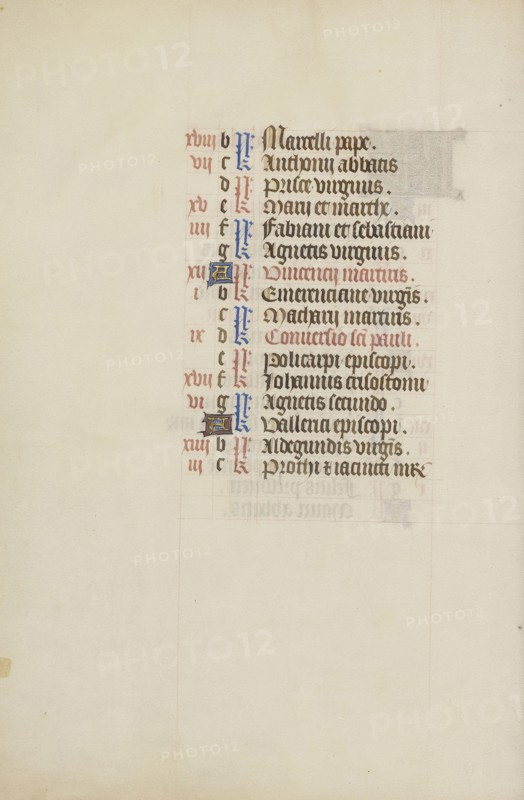 xviij b N Marcelli pape.
vij c k Anthonij abbatis
d N Prisce virginis.
xv e k Marij et marthe.
iiij f N Fabiani et sebastiani
g k Agnetis virginis.
xij A N Vincencij martiris.
i b k Emerenciane virgis.
c N Macharij martiris.
ix d k Conversio sci pauli.
e N Policarpi episcopi.
xvij f k Johannis crisostomi
vi g N Agnetis secundo.
A k Vallerici episcopi.
xiiij b N Aldegundis virgis.
iij c k Prothi & iacincti mr
PHOTO12